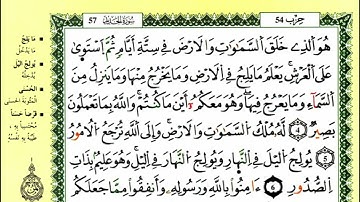 حزب 54
سورة الحديد
57
هُوَ ٱلَّذِى خَلَقَ ٱلسَّمَٰوَٰتِ وَٱلْأَرْضَ فِى سِتَّةِ أَيَّامٍ ثُمَّ ٱسْتَوَىٰ
عَلَى ٱلْعَرْشِ يَعْلَمُ مَا يَلِجُ فِى ٱلْأَرْضِ وَمَا يَخْرُجُ مِنْهَا وَمَا يَنزِلُ مِنَ
ٱلسَّمَآءِ وَمَا يَعْرُجُ فِيهَا وَهُوَ مَعَكُمْ أَيْنَ مَا كُنتُمْ وَٱللَّهُ بِمَا تَعْمَلُونَ
بَصِيرٌ ٤ لَّهُۥ مُلْكُ ٱلسَّمَٰوَٰتِ وَٱلْأَرْضِ وَإِلَى ٱللَّهِ تُرْجَعُ ٱلْأُمُورُ
٥ يُولِجُ ٱلَّيْلَ فِى ٱلنَّهَارِ وَيُولِجُ ٱلنَّهَارَ فِى ٱلَّيْلِ وَهُوَ عَلِيمٌۢ بِذَاتِ
ٱلصُّدُورِ ٦ ءَامِنُوا۟ بِٱللَّهِ وَرَسُولِهِۦ وَأَنفِقُوا۟ مِمَّا جَعَلَكُم
ما يلج
ما يدخل
يولج الليل
يدخله
الحسنى
المثوبة الحسنى
قرضا حسنا
محتسبا به
طيبة به نفسه